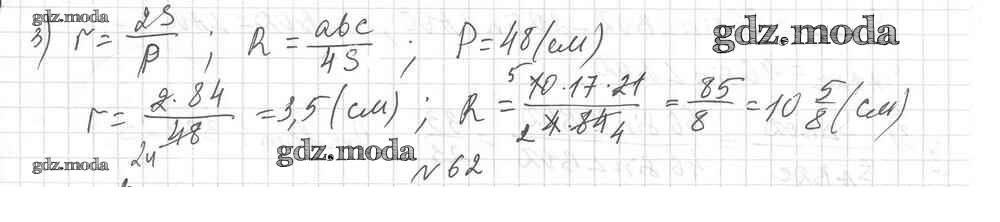 gdz.moda
3) r = 2S/P ; R = abc/4S ; P = 48 (см)
gdz.moda
r = 2·84/48 24 = 3,5 (см) ; R = 5 10·17·21/2 4·84 4 = 85/8 = 10 5/8 (см)
gdz.moda
gdz.moda
№ 62